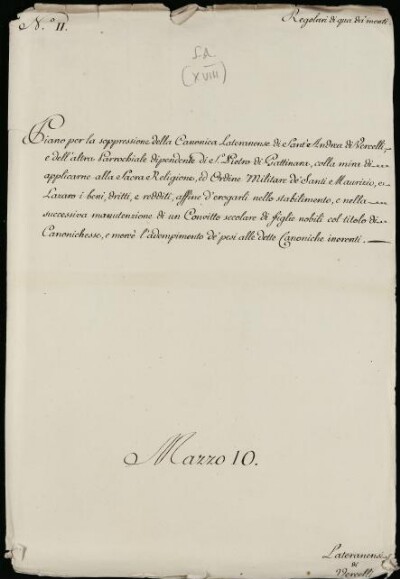 N.º 11.
Regolari di quà dai monti
S.d.
(XVIII)
Piano per la soppressione della Canonica Lateranense di Sant'Andrea di Vercelli,
e dell'altra Parrochiale dipendente di S. Pietro di Gattinara, colla mira di
applicarne alla Sacra Religione, ed Ordine Militare de' Santi Maurizio, e
Lazaro i beni, dritti, e redditi, affine d'erogarli nello stabilimento, e nella
successiva manutenzione di un Convitto secolare di figlie nobili col titolo di
Canonichesse, e mercè l'adempimento de' pesi alle dette Canoniche inerenti.
Mazzo 10.
Lateranensi
di
Vercelli